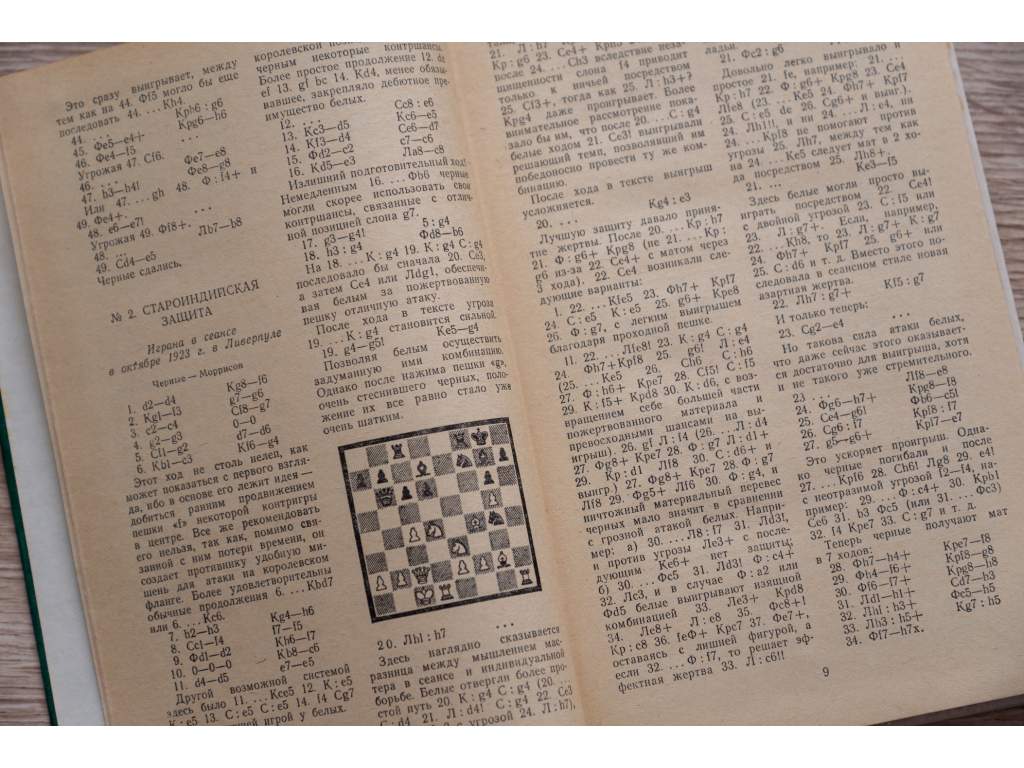 Это сразу выигрывает, между
тем как на 44. Фf5 могло бы еще
последовать 44. ... Kh4.
44. ... Kph6 : g6
45. Фe5—e4+ Kpg6—h6
46. Фe4—f5
Угрожая 47. Cf6.
46. ... Фe7—e8
47. h3—h4! Фe8—g8
Или 47. ... gh 48. Ф : f4+ и
49. Фe4+.
48. e6—e7! ...
Угрожая 49. Фf8+.
48. ... Лb7—b8
49. Cd4—e5
Черные сдались.
№ 2. СТАРОИНДИЙСКАЯ
ЗАЩИТА
Играна в сеансе
в октябре 1923 г. в Ливерпуле
Черные — Моррисон
1. d2—d4 Kg8—f6
2. Kg1—f3 g7—g6
3. c2—c4 Cf8—g7
4. g2—g3 0—0
5. Cf1—g2 d7—d6
6. Kb1—c3 Kf6—g4
Этот ход не столь нелеп, как
может показаться с первого взгля-
да, ибо в основе его лежит идея —
добиться ранним продвижением
пешки «f» некоторой контригры
в центре. Все же рекомендовать
его нельзя, так как, помимо свя-
занной с ним потери времени, он
создает противнику удобную ми-
шень для атаки на королевском
фланге. Более удовлетворительны
обычные продолжения 6. ... Kbd7
или 6. ... Kc6.
7. h2—h3 Kg4—h6
8. Cc1—f4 f7—f5
9. Фd1—d2 Kh6—f7
10. 0—0—0 Kb8—c6
11. d4—d5 e7—e5
Другой возможной системой
здесь было 11. ... Kce5 12. K : e5
K : e5 13. C : e5 C : e5 14. f4 Cg7
игрой у белых.
королевской
черным некоторые контршансы.
Более простое продолжение 12. de
ef 13. gf bc 14. Kd4, менее обязы-
вавшее, закрепляло дебютное пре-
имущество белых.
12. ... Cc8 : e6
13. Kc3—d5 Kc6—e5
14. Kf3—d4 Ce6—d7
15. Фd2—c2 c7—c6
16. Kd5—e3 Лa8—c8
Излишний подготовительный ход!
Немедленным 16. ... Фb6 черные
могли скорее использовать свои
контршансы, связанные с отлич-
ной позицией слона g7.
17. g3—g4! f5 : g4
18. h3 : g4 Фd8—b6
На 18. ... K : g4 19. K : g4 C : g4
последовало бы сначала 20. Cc3,
а затем Ce4 или Лdg1, обеспечи-
вая белым за пожертвованную
пешку отличную атаку.
После хода в тексте угроза
19. ... K : g4 становится сильной.
19. g4—g5! Ke5—g4
Позволяя белым осуществить
задуманную ими комбинацию.
Однако после нажима пешки «g»,
очень стеснившего черных, поло-
жение их все равно стало уже
очень шатким.
20. Лh1 : h7 ...
Здесь наглядно сказывается
разница между мышлением мас-
тера в сеансе и индивидуальной
борьбе. Белые отвергли более про-
стой путь 20. K : g4 C : g4 (20. ...
C : d4 21. Л : d4! C : g4 22. Ce3
с угрозой 24. Л : h7),
Kp : g6 23. Ce4+ Kph5
после 24. ... Ch3 вследствие неза-
щищенности слона f4 приводит
только к ничьей посредством
25. Cf3+, тогда как 25. Л : h3+?
Kpg4 даже проигрывает. Более
внимательное рассмотрение пока-
зало бы им, что после 20. ... C : g4
белые ходом 21. Ce3! выигрывали
решающий темп, позволявший им
победоносно провести ту же ком-
бинацию.
После хода в тексте выигрыш
усложняется.
20. ... Kg4 : e3
Лучшую защиту давало приня-
тие жертвы. После 20. ... Kp : h7
21. Ф : g6+ Kpg8 (не 21. ... Kp :
g6 из-за 22. Ce4+ с матом через
3 хода). 22. Ce4 возникали сле-
дующие варианты:
I. 22. ... Kfe5 23. Фh7+ Kpf7
24. C : e5 K : e5 25. g6+ Kpe8
26. Ф : g7, с легким выигрышем
благодаря проходной пешке.
II. 22. ... Лfe8! 23. K : g4 C : g4
24. Фh7+Kpf8 25. g6! Л : e4
(25. ... Ke5 26. Ch6! C : h6
27. Ф : h6+ Kpe7 28. Cf5! C : f5
29. K : f5+ Kpd8 30. K : d6, с воз-
вращением себе большей части
пожертвованного материала и
превосходными шансами на вы-
игрыш). 26. gf Л : f4 (26. ... Л : d4
27. Фg8+ Kpe7 28. Ф : g7 Л : d1+
29. Kp : d1 Лf8 30. C : d6+ и
выигр.) 27. Фg8+ Kpe7 28. Ф : g7
Лf8 29. Фg5+ Лf6 30. Ф : g4, и
ничтожный материальный перевес
черных мало значит в сравнении
с грозной атакой белых. Напри-
мер: а) 30. ... Л8 : f7 31. Лd3!,
и против угрозы Лe3+ с после-
дующим Ke6+ нет защиты;
б) 30. ... Фc5 31. Лd3! Ф : c4+
32. Лc3, и в случае Ф : a2 или
Фd5 белые выигрывают изящной
комбинацией 33. Лe3+ Kpd8
34. Лe8+ Л : e8 35. Фc8+!
Kp : c8 36. feФ+ Kpc7 37. Фe7+,
оставаясь с лишней фигурой, а
если 32. ... Ф : f7, то решает эф-
фектная жертва 33. Л : c6!!
ладьи. Фc2 : g6
Довольно легко выигрывало и
простое 21. fe, например: 21. ...
Kp : h7 22. Ф : g6+ Kpg8 23. Ce4
Лfe8 (23. ... Ke5 24. Фh7+ Kpf7
25. C : e5 de 26. Cg6+ и выигр.).
24. Лh1!!, и ни 24. ... Л : e4, ни
24. ... Kpf8 не помогают против
угрозы 25. Лh7, между тем как
на 24. ... Ke5 следует мат в 2 хо-
да посредством 25. Лh8+.
21. ... Ke3—f5
Здесь белые могли просто вы-
играть посредством 22. Ce4!
с двойной угрозой 23. C : f5 или
23. Л : g7+. Если, например,
22. ... Kh8, то 23. Л : g7+ K : g7
24. Фh7+ Kpf7 25. g6+ или
25. C : d6 и т. д. Вместо этого по-
следовала в сеансном стиле новая
азартная жертва.
22. Лh7 : g7+ Kf5 : g7
И только теперь:
23. Cg2—e4 ...
Но такова сила атаки белых,
что даже сейчас этого оказывает-
ся достаточно для выигрыша, хотя
и не такого уже стремительного.
23. ... Лf8—e8
24. Фg6—h7+ Kpg8—f8
25. Ce4—g6! Фb6—c5!
26. Cg6 : f7 Kpf8 : f7
27. g5—g6+ Kpf7—e7
Это ускоряет проигрыш. Одна-
ко черные погибали и после
27. ... Kpf6 28. Ch6! Лg8 29. e4!
с неотразимой угрозой f2—f4, на-
пример: 29. ... Ф : c4+ 30. Kpb1
Ce6 31. b3 Фc5 (или 31. ... Фc3)
32. f4 Kpe7 33. C : g7 и т. д.
Теперь черные получают мат
в 7 ходов:
28. Фh7—h4+ Kpe7—f8
29. Фh4—f6+ Kpf8—g8
30. Фf6—f7+ Kpg8—h8
31. Лd1—h1+ Cd7—h3
32. Лh1 : h3+ Фc5—h5
33. Лh3 : h5+ Kg7 : h5
34. Фf7—h7×.
9